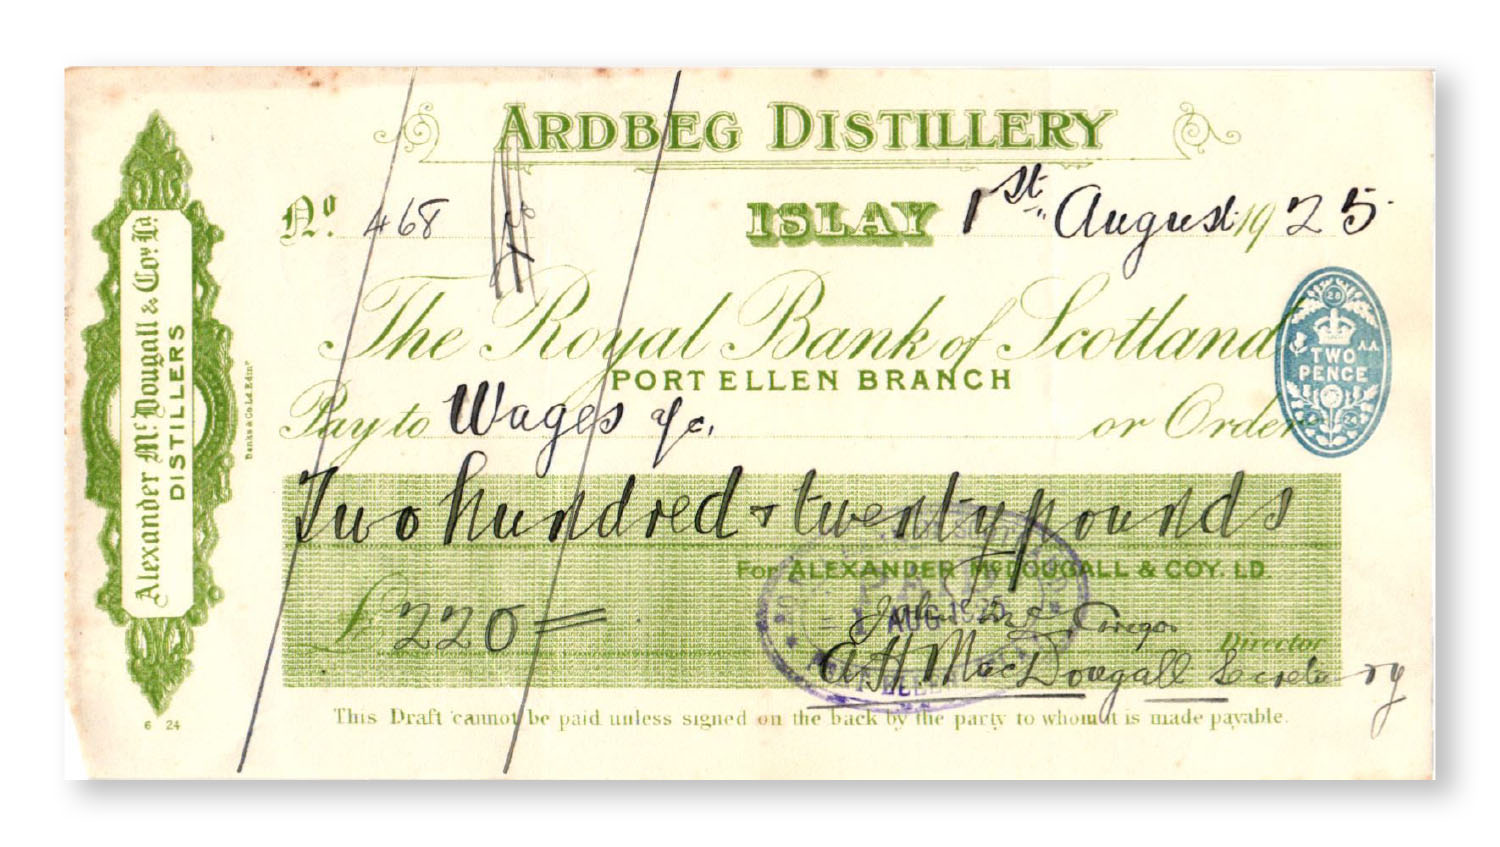 ARDBEG DISTILLERY
No. 468
ISLAY 1st August 1925
The Royal Bank of Scotland
PORT ELLEN BRANCH
TWO
PENCE
Pay to Wages a/c. or Order
Two hundred & twenty pounds
For ALEXANDER McDOUGALL & COY. LD.
£220=
AUG 1925
Director
A H MacDougall Secretary
This Draft cannot be paid unless signed on the back by the party to whom it is made payable.
Alexander McDougall & Coy. Ld.
DISTILLERS
Banks & Co Ld. Edinr
6 24